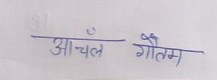 आचलँ गौतम